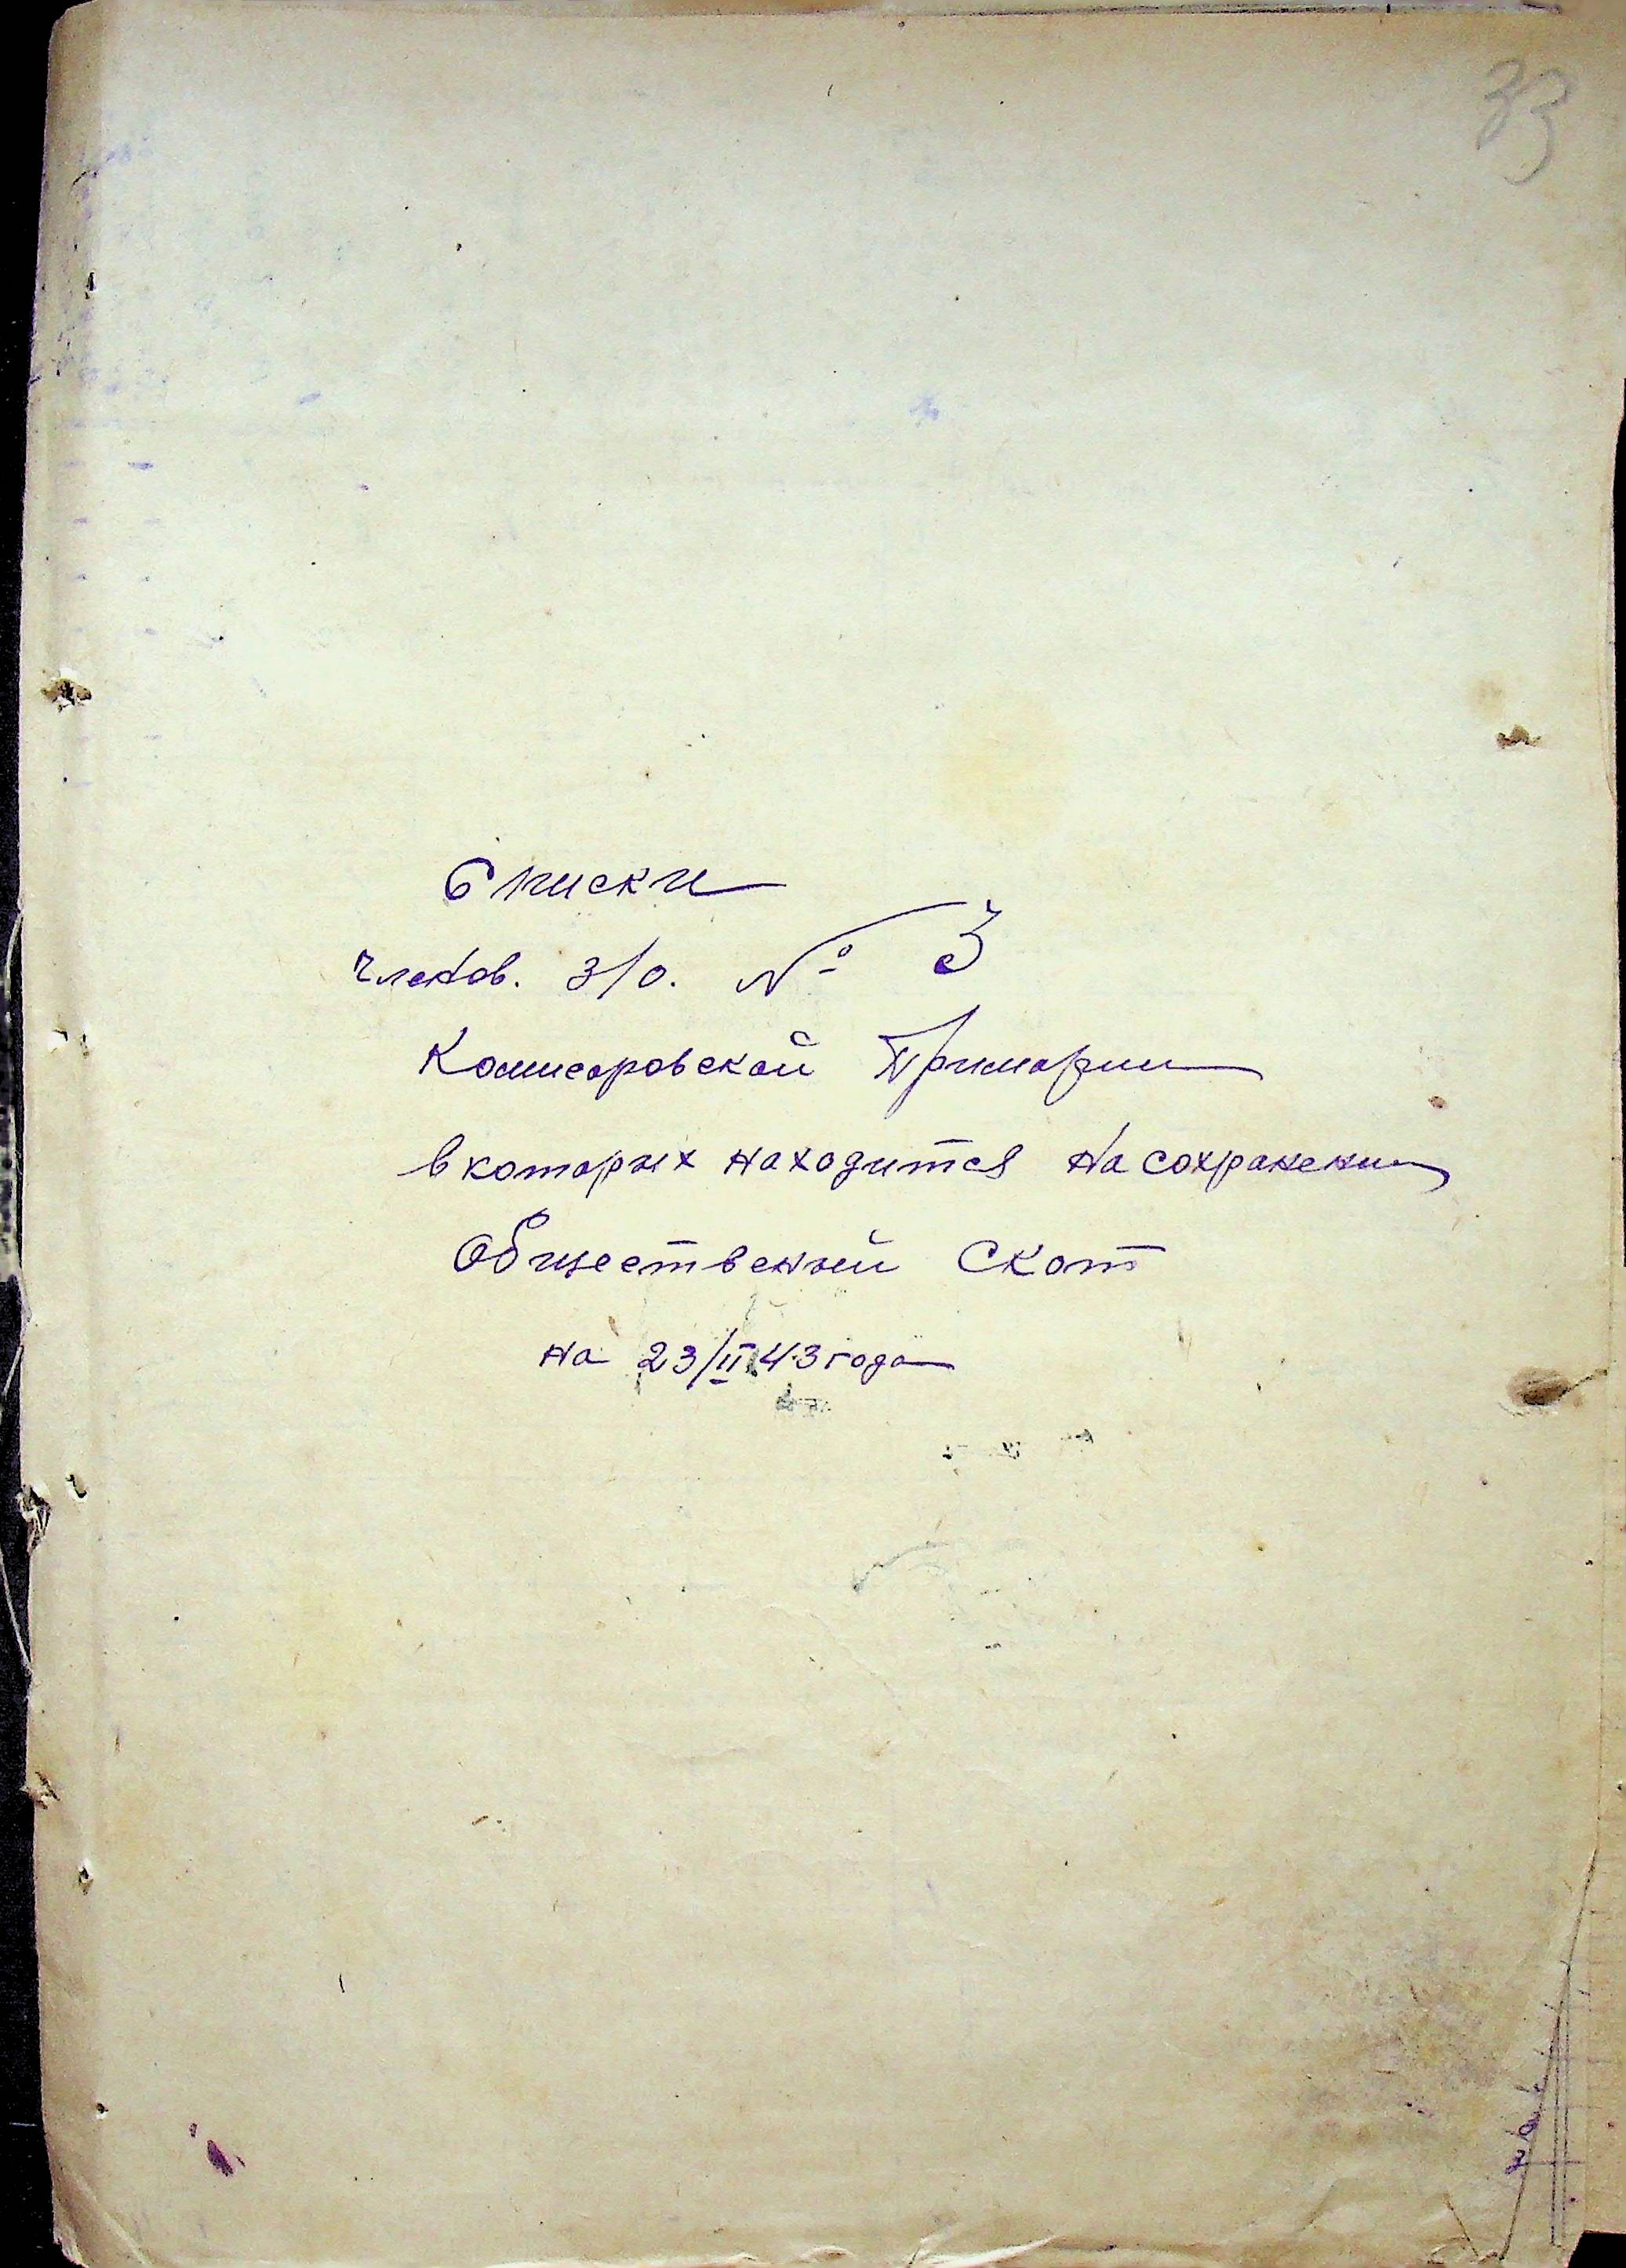 33
Списки
членов. з/о. № 3
Комисаровской Примарии
в которых находится на сохранении
Общественый Скот
на 23/II 43 года